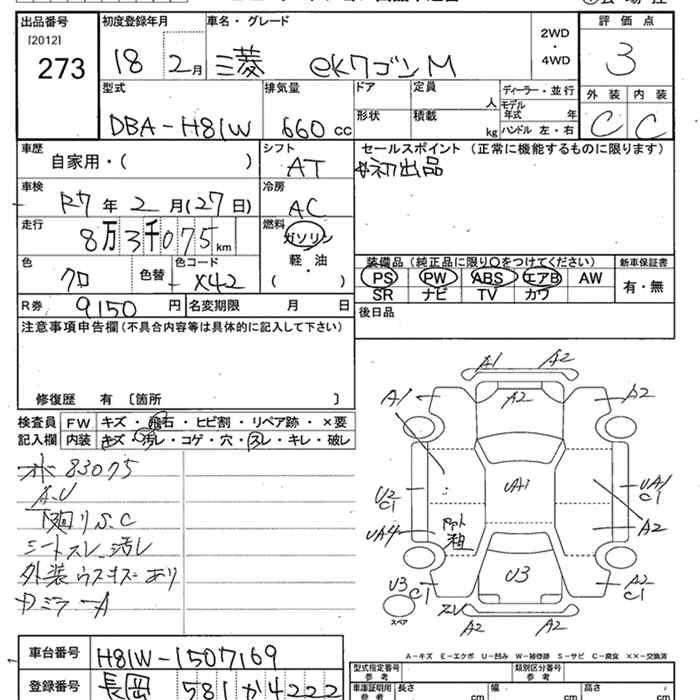 出品番号 初度登録年月 車名・グレード 評価点
[2012]
273 18年 2月 三菱 ekワゴンM 2WD・4WD 3
外装 内装
C C
型式 排気量 ドア 定員 人 ディーラー・並行
DBA-H81W 660cc 形状 積載 kg モデル年式 年
ハンドル 左・右
車歴 自家用・( ) シフト AT セールスポイント(正常に機能するものに限ります)
#初出品
車検 R7年 2月(27日) 冷房 AC
走行 8万3千075km 燃料 ガソリン
軽・油
( )
色 クロ 色替 色コード X42
装備品(純正品に限り〇をつけてください) 新車保証書
PS PW ABS エアB AW 有・無
SR ナビ TV カワ
R券 9150円 名変期限 月 日 後日品
注意事項申告欄(不具合内容等は具体的に記入して下さい)
修復歴 有 〔箇所 〕
検査員 FW キズ・飛石・ヒビ割・リペア跡・×要
記入欄 内装 キズ・汚レ・コゲ・穴・スレ・キレ・破レ
83075
A.U
下廻りS.C
シートスレ、汚レ
外装ウスキズあり
A
A1 A2
A1 A2 A2
U2 C1 UA1 UA1 C1
UA4 A2
U3 C1 U3 A2 C1
スペア スレ A2 A2
A-キズ E-エクボ U-凹み W-補修跡 S-サビ C-腐食 ××-交換済
車台番号 H81W-1507169
登録番号 長岡 581 か 4222
型式指定番号 参考 類別区分番号 参考
車庫証明用 参考 長さ cm 幅 cm 高さ cm